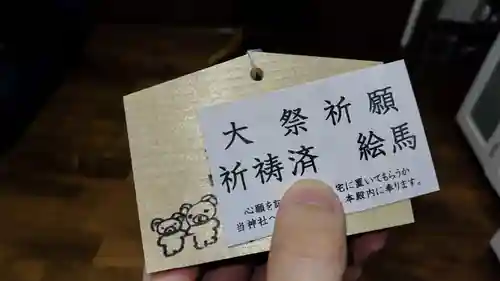 大祭祈願
祈祷済　絵馬
心願を記
宅に置いてもらうか
当神社へ
本殿内に奉ります。